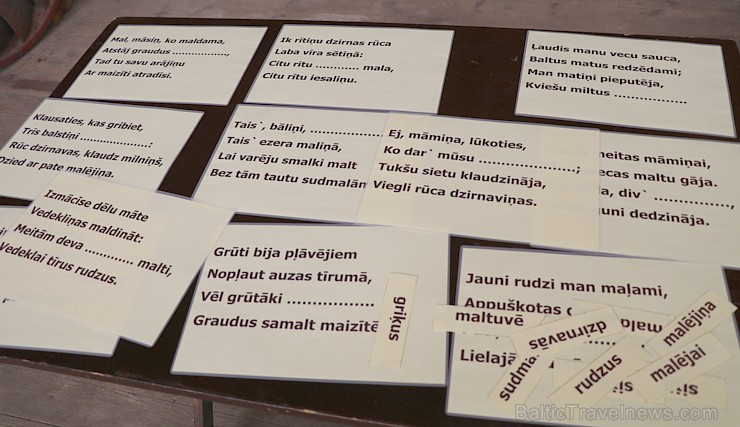 Mal, māsiņ, ko maldama,
Atstāj graudus ...............,
Tad tu savu arājiņu
Ar maizīti atradīsi.
Ik rītiņu dzirnas rūca
Laba vīra sētiņā:
Citu rītu ............ mala,
Citu rītu iesaliņu.
Ļaudis manu vecu sauca,
Baltus matus redzēdami;
Man matiņi pieputēja,
Kviešu miltus ....................
Klausaties, kas gribiet,
Trīs balstiņi ..................:
Rūc dzirnavas, klaudz milniņš,
Dzied ar pate malējiņa.
Tais`, bāliņi, ..................
Tais` ezera maliņā,
Lai varēju smalki malt
Bez tām tautu sudmalām
Ej, māmiņa, lūkoties,
Ko dar` mūsu ....................;
Tukšu sietu klaudzināja,
Viegli rūca dzirnaviņas.
meitas māmiņai,
ecas maltu gāja.
a, div` ................,
guni dedzināja.
Izmācīse dēlu māte
Vedekliņas maldināt:
Meitām deva ............. malti,
Vedeklai tīrus rudzus.
Grūti bija pļāvējiem
Nopļaut auzas tīrumā,
Vēl grūtāki ..................
Graudus samalt maizītē
griķus
Jauni rudzi man maļami,
Appuškotas
Lielajā
maltuvē
dzirnavās
malējiņa
sudma
rudzus
malējai
BalticTravelNews.com